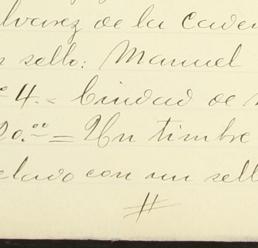 lvarez de la Caden
n sello: Manuel
4. = Ciudad de
20.00 = Un timbre
elado con un sell
#